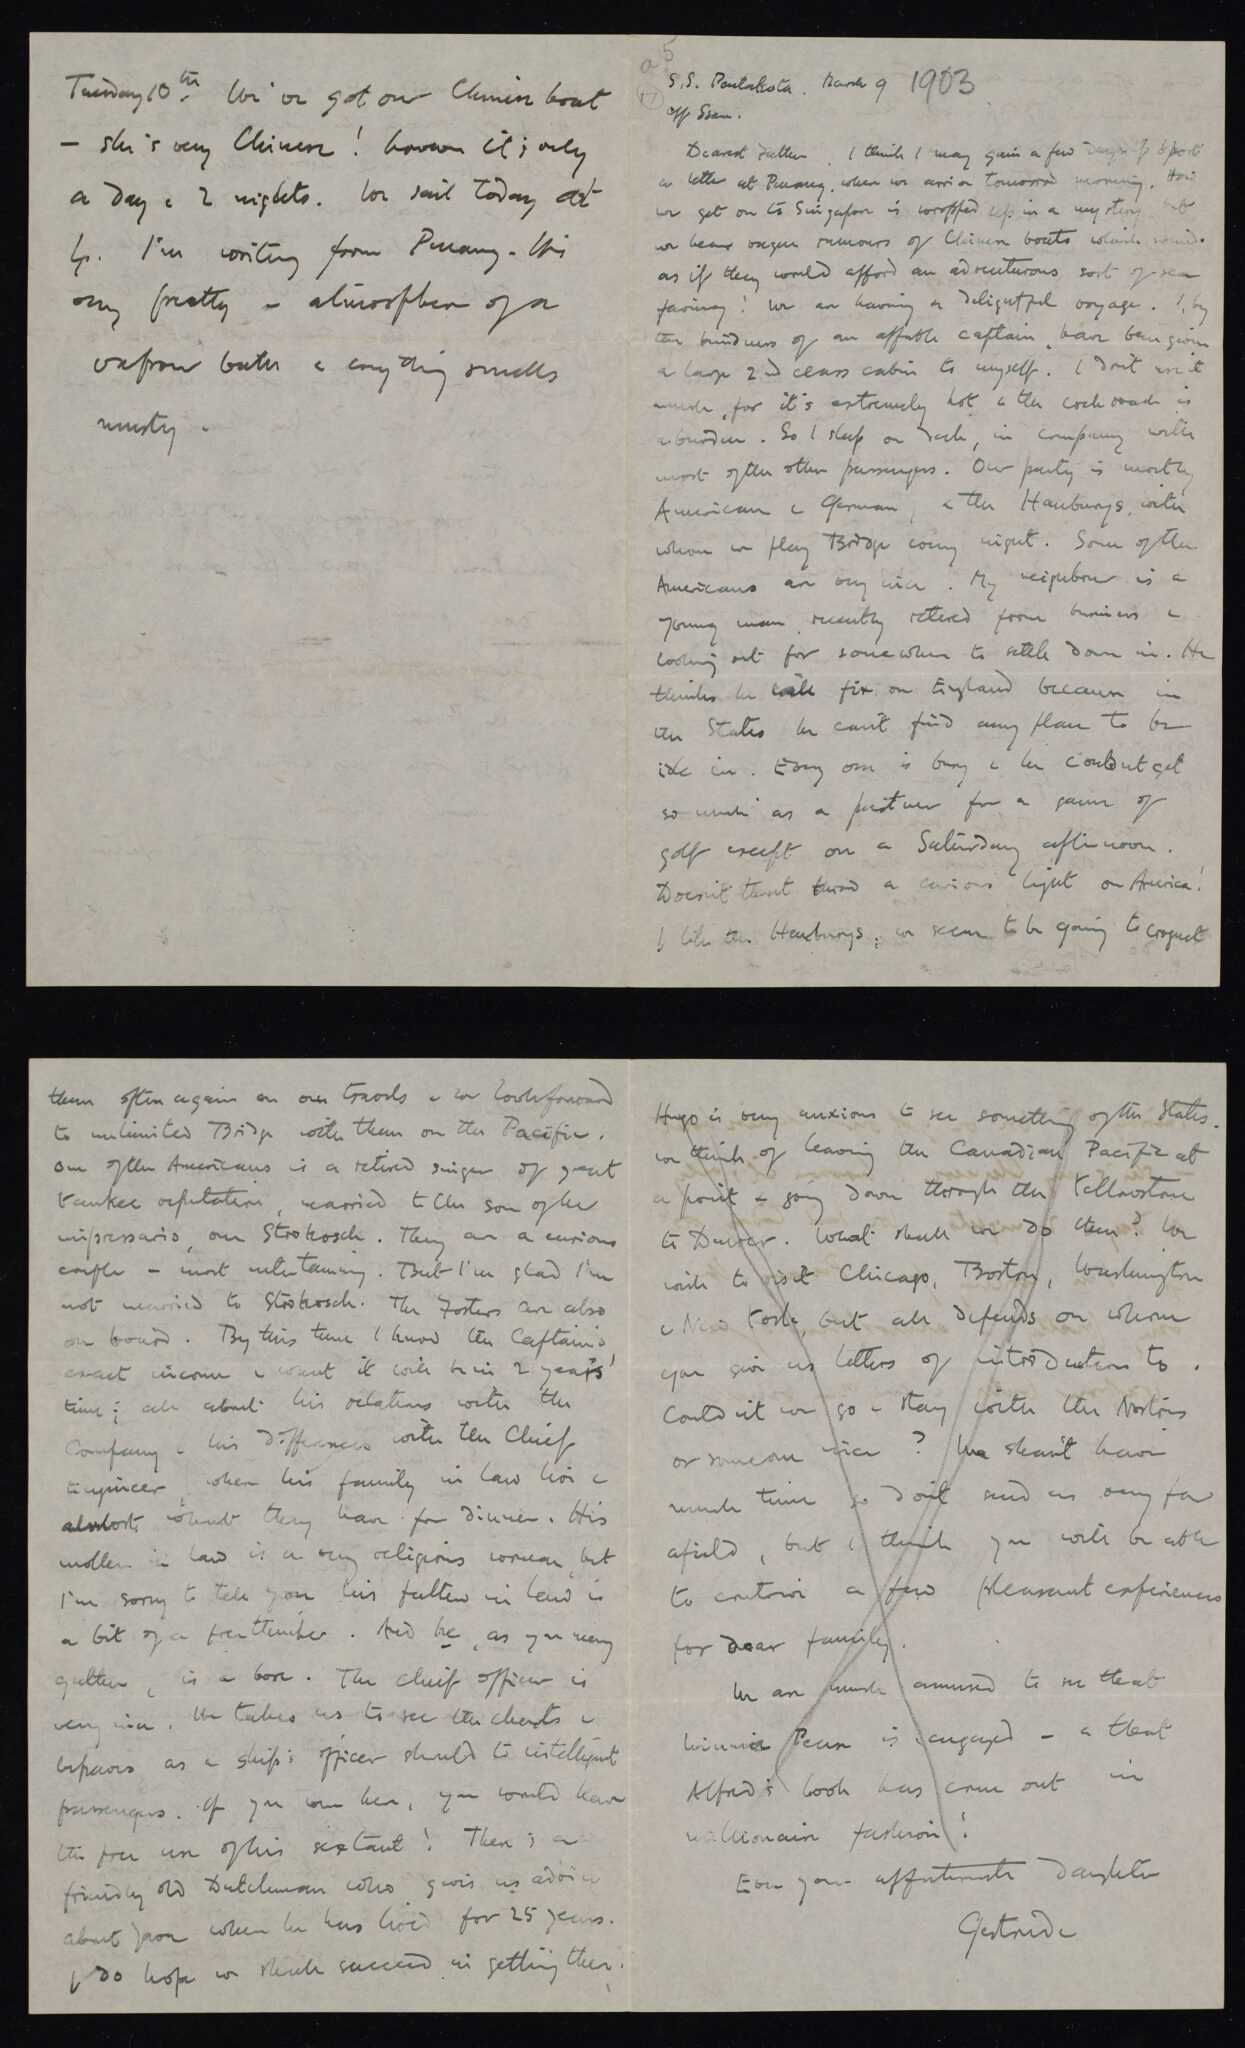 S.S. Pentakota. March 9 1903
off Siam.
Dearest Father. I think I may gain a few days if I post
a letter at Penang, when we arrive tomorrow morning. How
we get on to Singapore is wrapped up in a mystery but
we hear vague rumours of Chinese boats which sound
as if they would afford an adventurous sort of sea
faring! We are having a delightful voyage. I, by
the kindness of an affable captain, have been given
a large 2nd class cabin to myself. I don't use it
much, for it's extremely hot & the cockroach is
a burden. So I sleep on deck, in company with
most of the other passengers. Our party is mostly
American & German, & the Hanburys, with
whom we play Bridge every night. Some of the
Americans are very nice. My neighbour is a
young man, recently retired from business &
looking out for somewhere to settle down in. He
thinks he will fix on England because in
the States he can't find any place to be
idle in. Every one is busy & he couldn't get
so much as a partner for a game of
golf except on a Saturday afternoon.
Doesn't that throw a curious light on America!
I like the Hanburys; we seem to be going to coquet
them often again on our travels & we look forward
to unlimited Bridge with them on the Pacific.
One of the Americans is a retired singer of great
Yankee reputation, married to the son of her
impressario, one Strokosch. They are a curious
couple - most entertaining. But I'm glad I'm
not married to Strokosch. The Fosters are also
on board. By this time I know the Captain's
exact income & what it will be in 2 years'
time; all about his relations with the
Company & his differences with the Chief
Engineer, where his family in law live &
almost what they have for dinner. His
mother in law is a very religious woman, but
I'm sorry to tell you his father in law is
a bit of a freethinker. And he, as you may
gather, is a bore. The chief officer is
very nice. He takes us to see the charts &
behaves as a ship's officer should to intelligent
passengers. If you were here, you would have
the free use of his sextant! There is a
friendly old Dutchman who gives us advice
about Java where he has lived for 25 years.
I do hope we shall succeed in getting there.
Hugo is very anxious to see something of the States.
We think of leaving the Canadian Pacific at
a point & going down through the Yellowstone
to Denver. What shall we do then? We
wish to visit Chicago, Boston, Washington
& New York, but all depends on whom
you give us letters of introduction to.
Couldn't we go & stay with the Nortons
or someone nice? We shan't have
much time so don't send us very far
afield, but I think you will be able
to contrive a few pleasant experiences
for dear family.
We are much amused to see that
Winnie Pease is engaged - & that
Alfred's book has come out in
millionaire fashion!
Ever your affectionate daughter
Gertrude
Tuesday 10th. We've got our Chinese boat
- she's very Chinese! however it's only
a day & 2 nights. We sail today at
4. I'm writing from Penang. It's
very pretty - atmosphere of a
vapour bath & everything smells
musty.